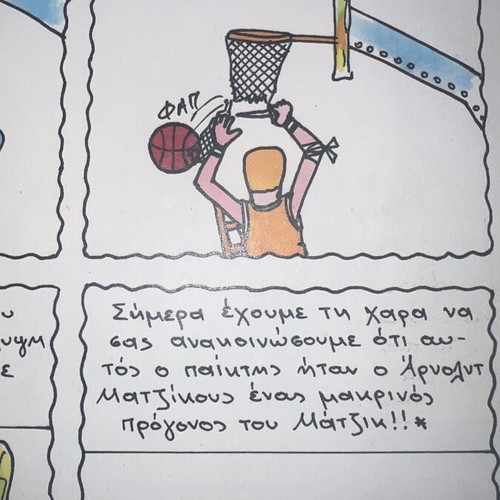 ΦΑΠ
Σήμερα έχουμε τη χαρά να
σας ανακοινώσουμε ότι αυ-
τός ο παίκτης ήταν ο Άρνολντ
Ματζίκους ένας μακρινός
πρόγονος του Μάτζικ!!*